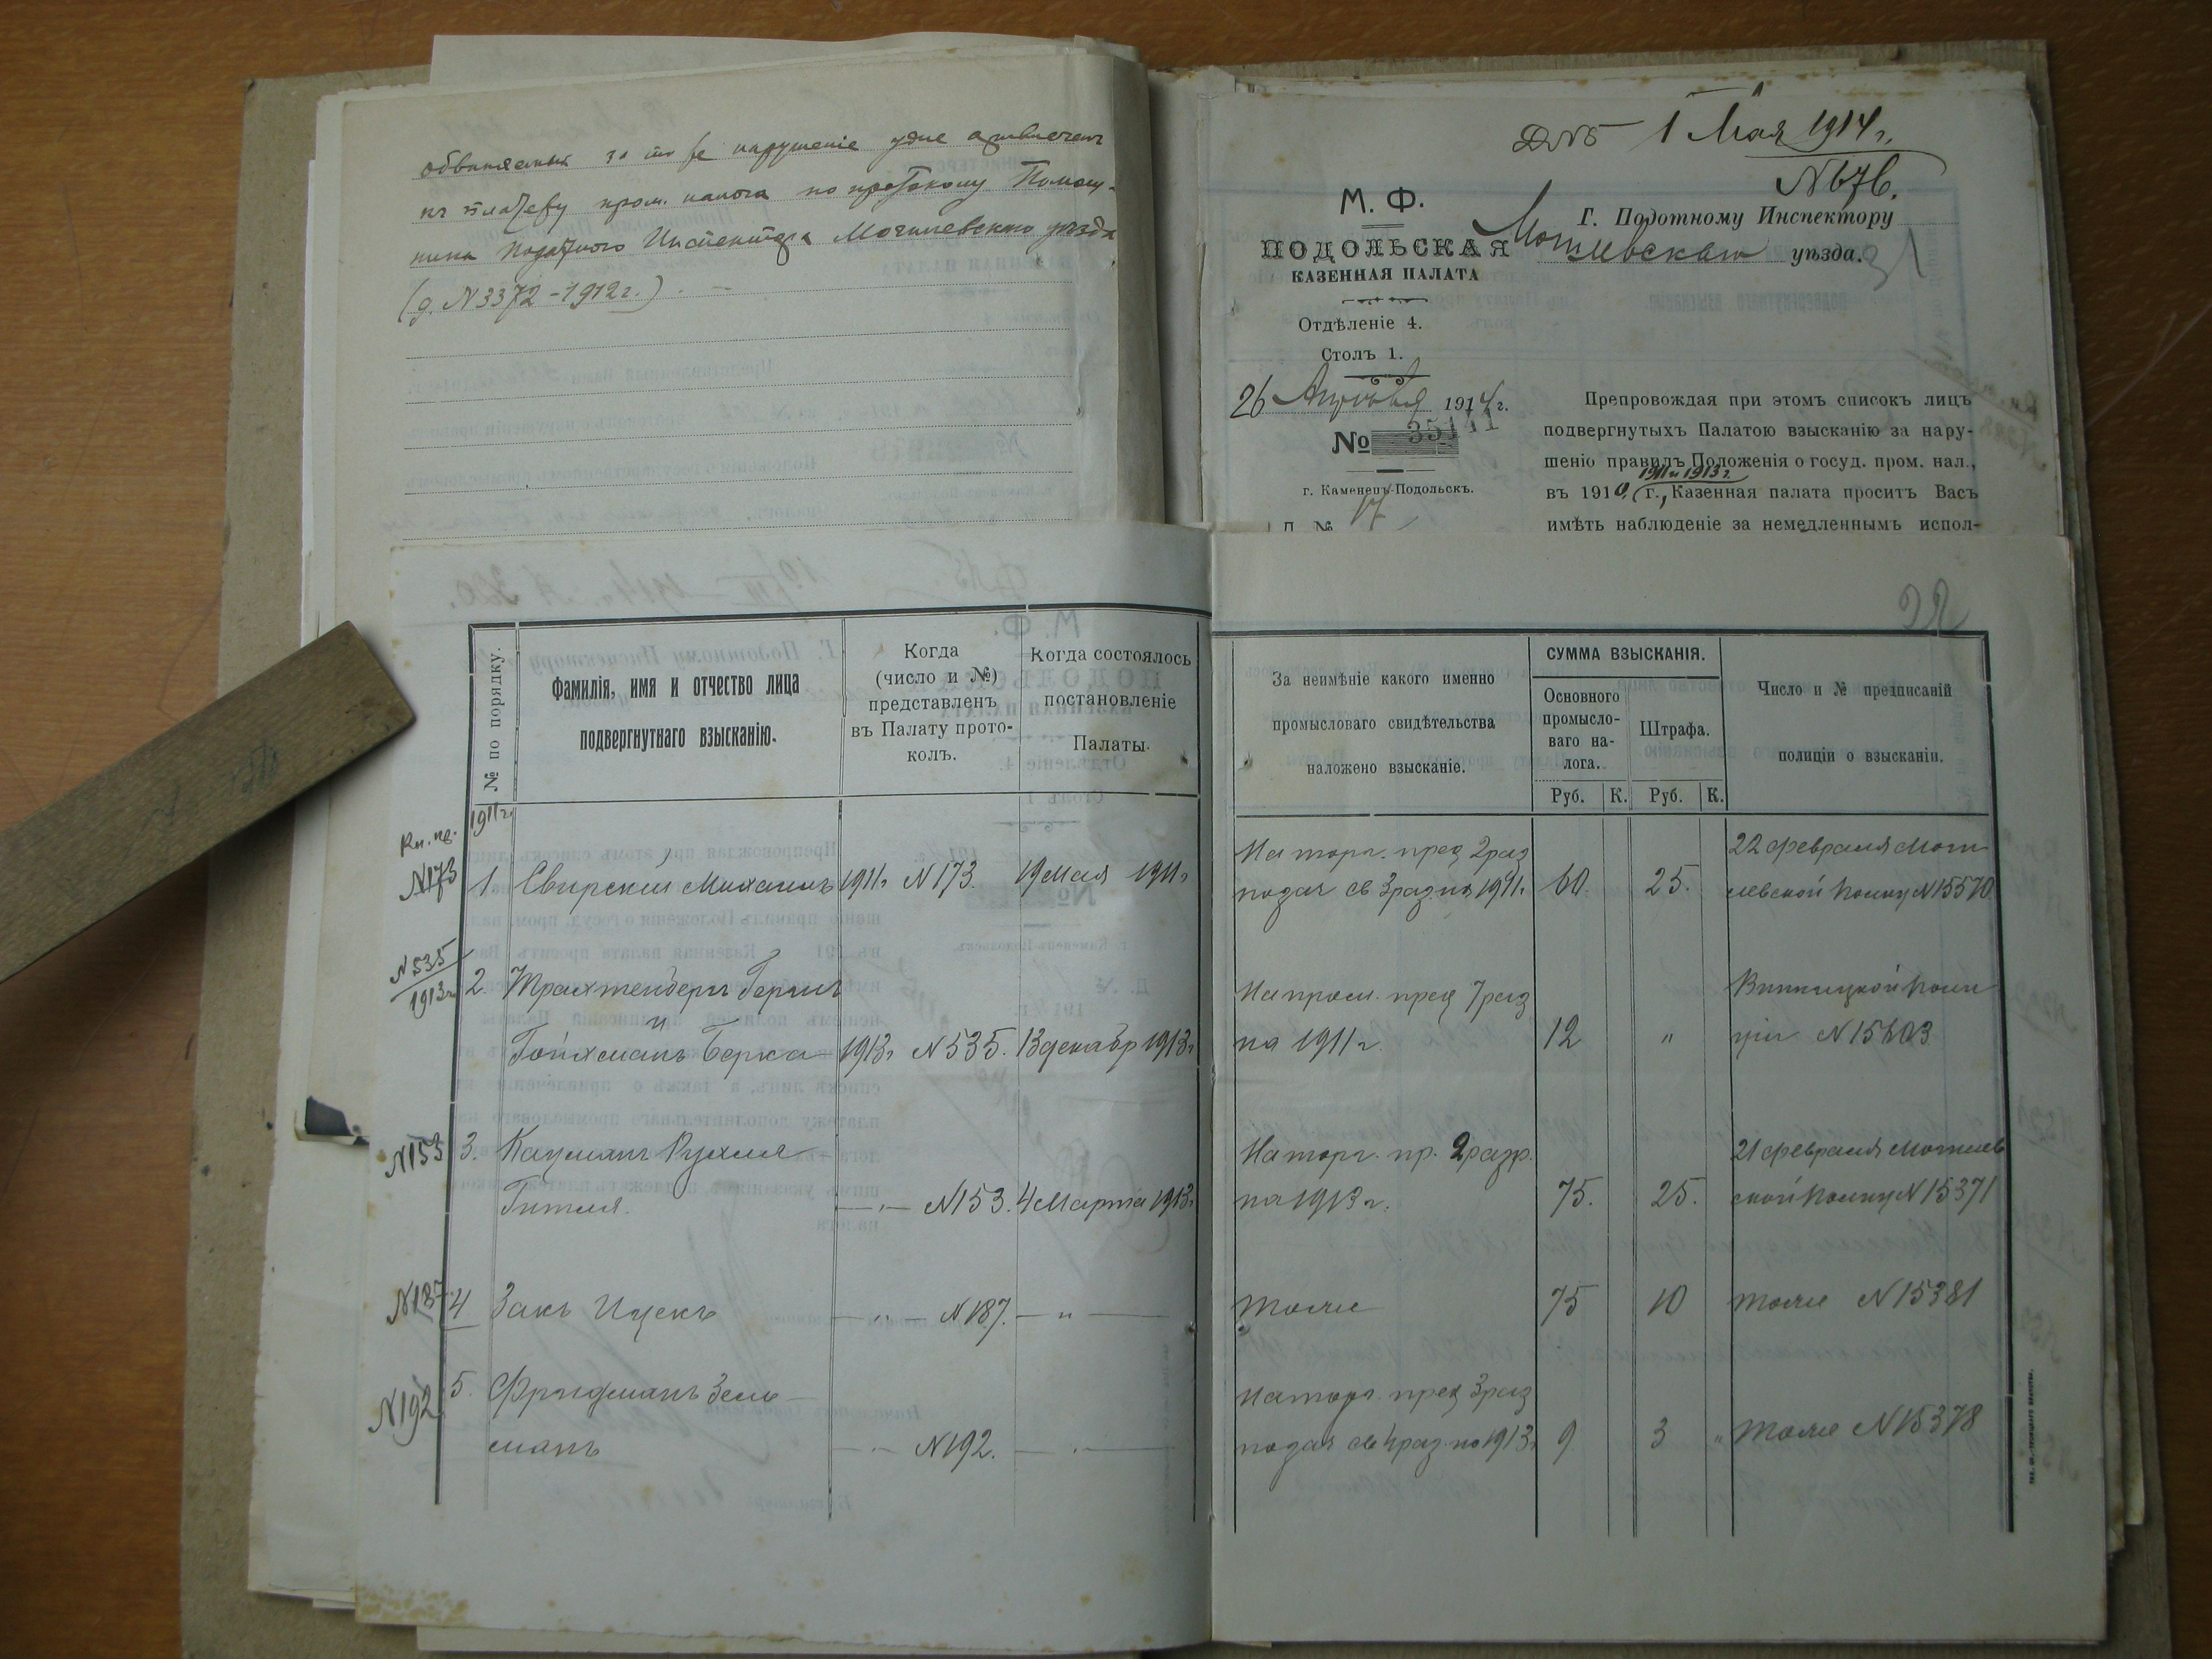 обвиняемых за то же нарушеніе уже
къ платежу пром. налога по протоколу Помощ-
ника Податного Инспектора Могилевскаго уѣзда
(д. N 3372 - 1912 г.)
1 Мая 1914 г.
N 676.
М. Ф.
ПОДОЛЬСКАЯ
КАЗЕННАЯ ПАЛАТА
Отдѣленіе 4.
Столъ 1.
26 Апрѣля 1914 г.
№ 35141
г. Каменецъ-Подольскъ.
Д. № 17
Г. Подотному Инспектору
Могилевскаго уѣзда.
Препровождая при этомъ списокъ лицъ
подвергнутыхъ Палатою взысканію за нару-
шеніо правилъ Положенія о госуд. пром. нал.,
1911 и 1913 г.
въ 1910, г., Казенная палата проситъ Васъ
имѣть наблюденіе за немедленнымъ испол-
92
№ по порядку.
Фамилія, имя и отчество лица
подвергнутнаго взысканію.
Когда
(число и №)
представленъ
въ Палату прото-
колъ.
Когда состоялось
постановленіе
Палаты.
За неимѣніе какого именно
промысловаго свидѣтельства
наложено взысканіе.
СУММА ВЗЫСКАНІЯ.
Основного
промысло-
ваго на-
лога.
Штрафа.
Руб. К. Руб. К.
Число и № предписаній
полиціи о взысканіи.
1911 г.
Кн. пр.
N173 1. Свирскій Михаилъ 1911 г N 173. 19 Мая 1911 г
На торг. пред 2 раз
22 февраля Моги
60. 25. левской Полиц N 15570
N 535
1913 г
2. Трахтенбергъ Гершъ
и
Гойхманъ Берка 1913 г N 535. 13 декабр 1913 г
На пром. пред 7 раз
на 1911 г. 12 "
Винницкой Поли
ціи
N153 3. Кацманъ Рухля
Гитля. —„— N 153. 4 Марта 1913 г
На торг. пр. 2 разр.
на 1913 г. 75. 25.
21 февраля Могилев
ской Полиц N 15371
N187 4 Закъ Ицекъ —„— N 187. —„—
тоже 75 10 тоже N 15381
N192 5. Фридманъ Зель
манъ —„— N 192. —„—
На торг. пред 3 раз
9 3 " тоже N 15378